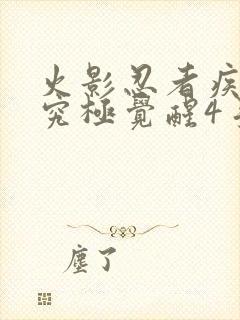 火影忍者疾
究極覺醒4
塵了